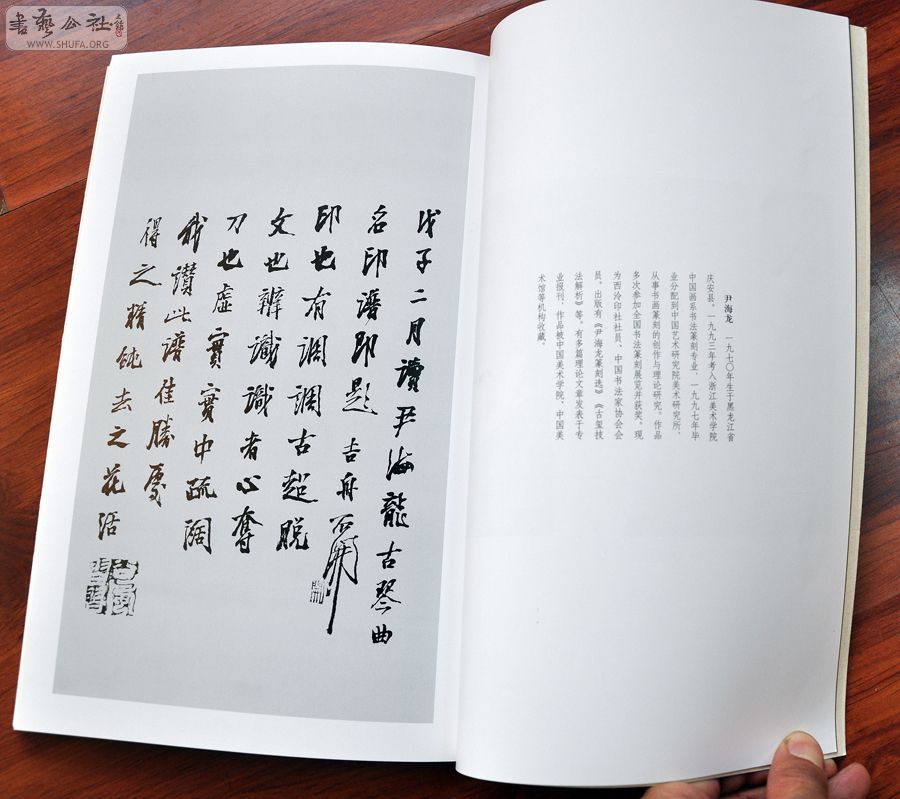 書藝公社
WWW.SHUFA.ORG
戊子二月讀尹海龍古琴曲
名印譜即題 吉舟石開
印也有調調古超脫
文也辨識識者心奪
刀也虛實實中疏闊
我讚此譜佳勝處
得之精純去之花活
尹海龙 一九七〇年生于黑龙江省
庆安县。一九九三年考入浙江美术学院
中国画系书法篆刻专业，一九九七年毕
业分配到中国艺术研究院美术研究所，
从事书画篆刻的创作与理论研究。作品
多次参加全国书法篆刻展览并获奖。现
为西泠印社社员、中国书法家协会会
员。出版有《尹海龙篆刻选》《古玺技
法解析》等，有多篇理论文章发表于专
业报刊，作品被中国美术学院、中国美
术馆等机构收藏。